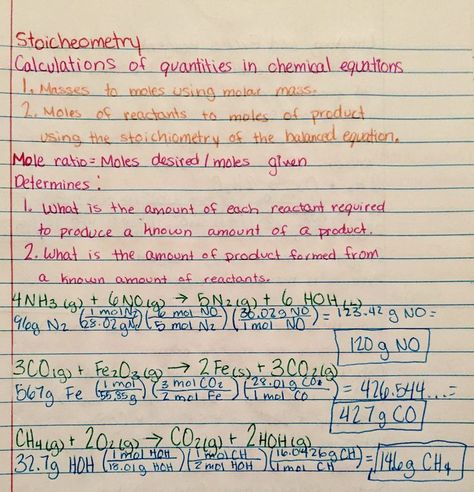 Stoicheometry
Calculations of quantities in chemical equations
1. Masses to moles using molar mass.
2. Moles of reactants to moles of product
using the stoichiometry of the balanced equation.
Mole ratio = Moles desired / moles given
Determines:
1. What is the amount of each reactant required
to produce a known amount of a product.
2. What is the amount of product formed from
a known amount of reactants.
4NH3 (g) + 6NO(g) → 5N2(g) + 6 HOH (L)
96g N2 (1 mol N2 / 28.02 g N2) (6 mol NO / 5 mol N2) (30.02g NO / 1 mol NO) = 123.42 g NO =
120 g NO
3CO(g) + Fe2O3(g) → 2Fe(s) + 3CO2(g)
567g Fe (1 mol / 55.85g) (3 mol CO2 / 2 mol Fe) (28.01g CO2 / 1 mol CO) = 426.544... =
427g CO
CH4(g) + 2O2(g) → CO2(g) + 2HOH(g)
32.7g HOH (1 mol HOH / 18.01g HOH) (1 mol CH / 2 mol HOH) (16.0426g CH / 1 mol CH) = 14.6g CH4